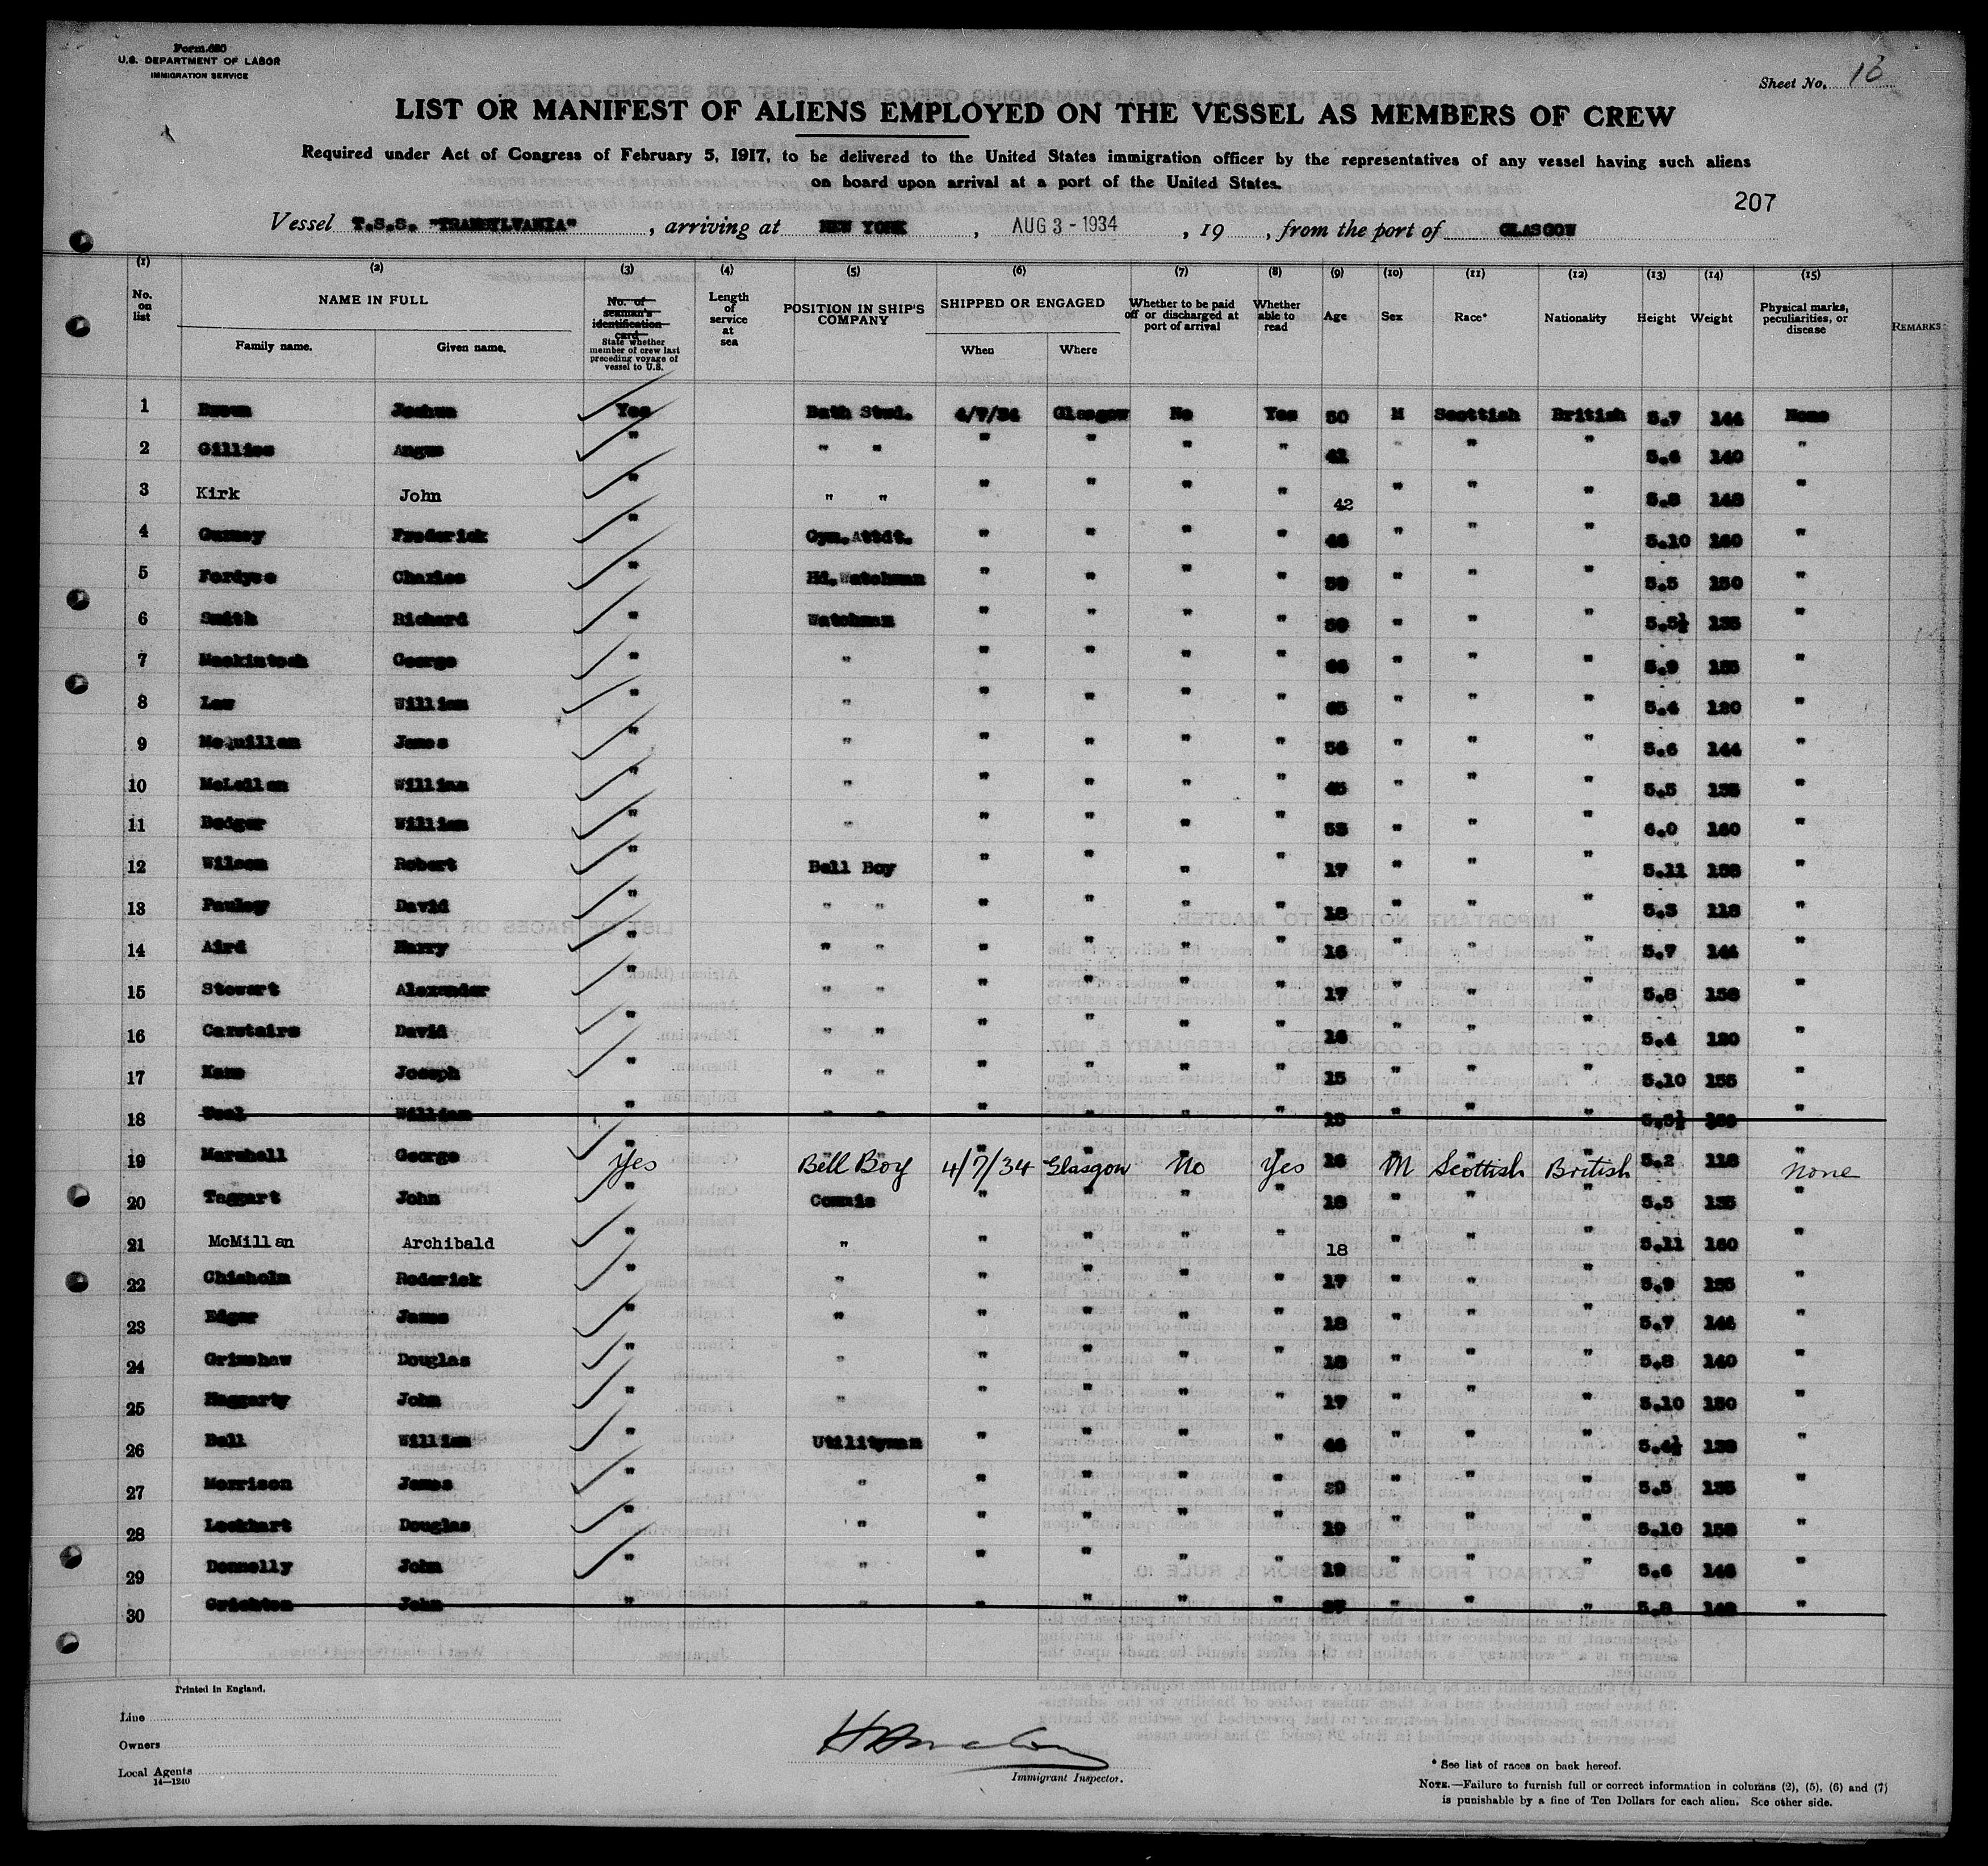 Form 680
U.S. DEPARTMENT OF LABOR
IMMIGRATION SERVICE
Sheet No. 16
LIST OR MANIFEST OF ALIENS EMPLOYED ON THE VESSEL AS MEMBERS OF CREW
Required under Act of Congress of February 5, 1917, to be delivered to the United States immigration officer by the representatives of any vessel having such aliens
on board upon arrival at a port of the United States.
207
Vessel T.S.S. "TRANSYLVANIA", arriving at NEW YORK, AUG 3 - 1934, 19 , from the port of GLASGOW
(1) (2) (3) (4) (5) (6) (7) (8) (9) (10) (11) (12) (13) (14) (15)
No. on list NAME IN FULL Family name. Given name. No. of seaman's identification card State whether member of crew last preceding voyage of vessel to U.S. Length of service at sea POSITION IN SHIP'S COMPANY SHIPPED OR ENGAGED When Where Whether to be paid off or discharged at port of arrival Whether able to read Age Sex Race* Nationality Height Weight Physical marks, peculiarities, or disease REMARKS
1 Brown Joshua Yes Bath Stwd. 4/7/34 Glasgow No Yes 50 M Scottish British 5.7 144 None
2 Gillies Angus " " " " " " " " " " " 5.6 140 "
3 Kirk John " " " " " " " 42 " " " 5.8 148 "
4 Gurney Frederick " Gym.Attdt. " " " " " " " 5.10 160 "
5 Fordyce Charles " Hd.Watchman " " " " " " " 5.5 150 "
6 Smith Richard " Watchman " " " " " " " 5.5½ 135 "
7 Mackintosh George " " " " " " " " " 5.9 "
8 Law William " " " " " " " " " 5.4 120 "
9 McQuillan James " " " " " " " " " 5.6 144 "
10 McLellan William " " " " " " " " " 5.5 135 "
11 Badger William " " " " " " 53 " " " 6.0 160 "
12 Wilson Robert " Bell Boy " " " " 17 " " " 5.11 158 "
13 Pauley David " " " " " " " " " " " 118 "
14 Aird Harry " " " " " " " 16 " " " 5.7 144 "
15 Stewart Alexander " " " " " " " 17 " " " 5.8 "
16 Carstairs David " " " " " " " 16 " " " 5.4 120 "
17 Kane Joseph " " " " " " " 15 " " " 5.10 155 "
18 William " " " " " " " " " " "
19 Marshall George Yes Bell Boy 4/7/34 Glasgow No Yes 16 M Scottish British 5.2 118 none
20 Taggart John " Commis " " " " 18 " " " 5.5 135 "
21 McMillan Archibald " " " " " " 18 " " " 5.11 160 "
22 Chisholm Roderick " " " " " " 17 " " " 5.9 "
23 Edgar James " " " " " " 18 " " " 5.7 144 "
24 Grimshaw Douglas " " " " " " 18 " " " 5.8 140 "
25 Haggarty John " " " " " " 17 " " " 5.10 150 "
26 Bell William " Utilityman " " " " " " " 5.4½ "
27 Morrison James " " " " " " " " " 5.5 135 "
28 Lockhart Douglas " " " " " " 19 " " " 5.10 158 "
29 Donnelly John " " " " " " 19 " " " 5.6 "
30 Crichton John " " " " " " " " " 5.8 "
Printed in England.
Line
Owners
Local Agents
14—1240
Immigrant Inspector.
* See list of races on back hereof.
NOTE.—Failure to furnish full or correct information in columns (2), (5), (6) and (7)
is punishable by a fine of Ten Dollars for each alien. See other side.